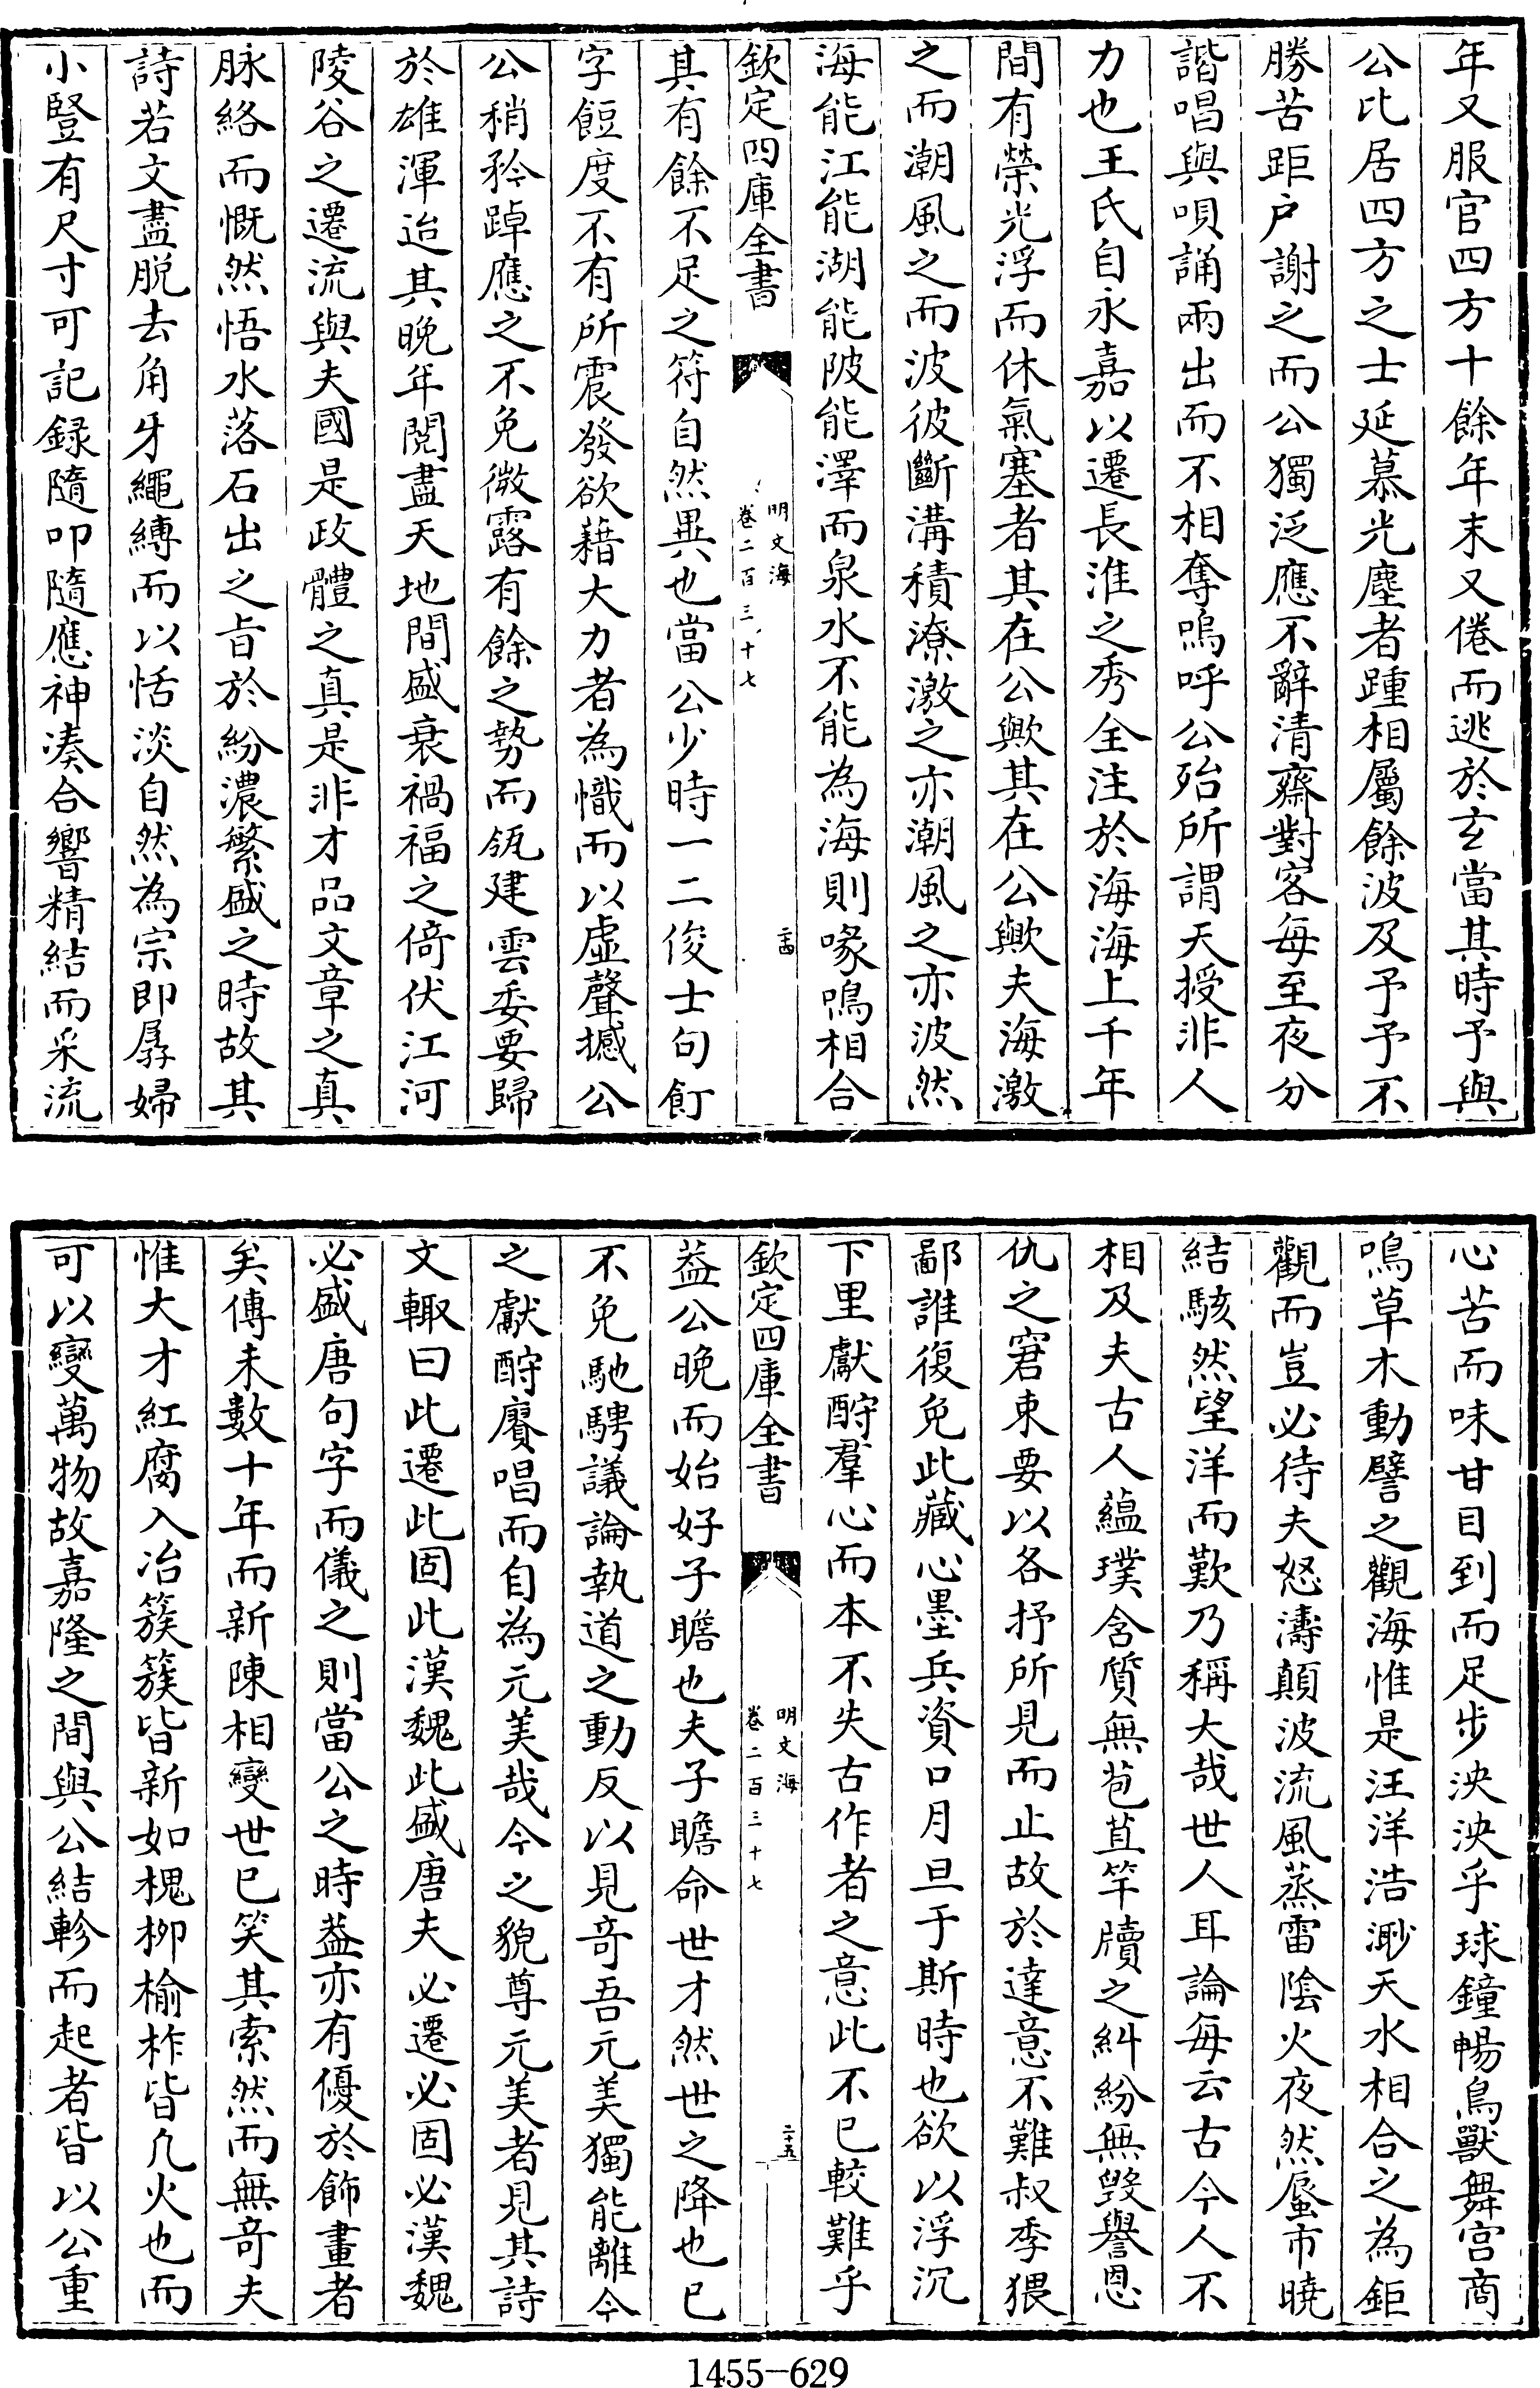 年又服官四方十餘年末又倦而逃於玄當其時予與
公比居四方之士延慕光塵者踵相屬餘波及予予不
勝苦距户謝之而公獨泛應不辭清齋對客每至夜分
諧唱與唄誦兩出而不相奪嗚呼公殆所謂天授非人
力也王氏自永嘉以遷長淮之秀全注於海海上千年
間有榮光浮而休氣塞者其在公歟其在公歟夫海激
之而潮風之而波彼斷溝積潦激之亦潮風之亦波然
海能江能湖能陂能澤而泉水不能為海則喙鳴相合
欽定四庫全書
明文海
卷二百三十七
二十四
其有餘不足之符自然異也當公少時一二俊士句飣
字餖度不有所震發欲藉大力者為幟而以虛聲撼公
公稍矜踔應之不免微露有餘之勢而瓴建雲委要歸
於雄渾迨其晚年閱盡天地間盛衰禍福之倚伏江河
陵谷之遷流與夫國是政體之真是非才品文章之真
脉絡而慨然悟水落石出之旨於紛濃繁盛之時故其
詩若文盡脱去角牙繩縛而以恬淡自然為宗即孱婦
小豎有尺寸可記錄隨叩隨應神凑合響精結而采流
心苦而味甘目到而足步泱泱乎球鐘暢鳥獸舞宫商
鳴草木動譬之觀海惟是汪洋浩渺天水相合之為鉅
觀而豈必待夫怒濤顛波流風蒸雷陰火夜然蜃市曉
結駭然望洋而歎乃稱大哉世人耳論每云古今人不
相及夫古人藴璞含質無苞苴竿牘之糾紛無毁譽恩
仇之窘束要以各抒所見而止故於達意不難叔季猥
鄙誰復免此藏心墨兵資口月旦于斯時也欲以浮沉
下里獻酧羣心而本不失古作者之意此不已較難乎
欽定四庫全書
明文海
卷二百三十七
二十五
益公晚而始好子瞻也夫子瞻命世才然世之降也已
不免馳騁議論執道之動反以見竒吾元美獨能離今
之獻酧賡唱而自為元美哉今之貌尊元美者見其詩
文輙曰此遷此固此漢魏此盛唐夫必遷必固必漢魏
必盛唐句字而儀之則當公之時葢亦有優於飾畫者
矣傳未數十年而新陳相變世已笑其索然而無竒夫
惟大才紅腐入冶簇簇皆新如槐柳榆柞皆凢火也而
可以變萬物故嘉隆之間與公結軫而起者皆以公重
1455-629